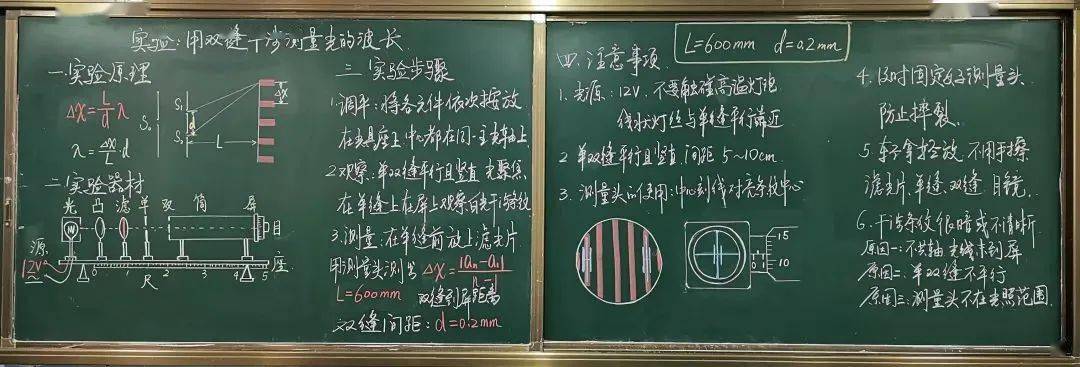 实验:用双缝干涉测量光的波长
一.实验原理
Δx=L/d λ
λ=Δx/L·d
S₀
S₁
S₂
d
L
Δx
二.实验器材
光 凸 滤 单 双 筒 屏
源
12V
目
0 1 2 3 4 5
尺
座
三.实验步骤
1.调平:将各元件依次按放
在光具座上 中心都在同一主光轴上
2.观察:单双缝平行且竖直 光聚焦
在单缝上 在屏上观察白光干涉条纹
3.测量:在单缝前放上滤光片
用测量头测出 Δx=|aₙ-a₁|/n-1
L=600mm 双缝到屏距离
双缝间距:d=0.2mm
L=600mm d=0.2mm
四.注意事项
1.光源:12V.不要触碰高温灯泡
线状灯丝与单缝平行靠近
2.单双缝平行且竖直.间距5~10cm
3.测量头的使用:中心刻线对亮条纹中心
15
0
10
4.及时固定好测量头
防止摔裂.
5.轻拿轻放 不用手擦
滤光片.单缝.双缝.目镜.
6.干涉条纹很暗或不清晰
原因一:不共轴 光线未到屏
原因二:单双缝不平行
原因三:测量头不在光照范围.